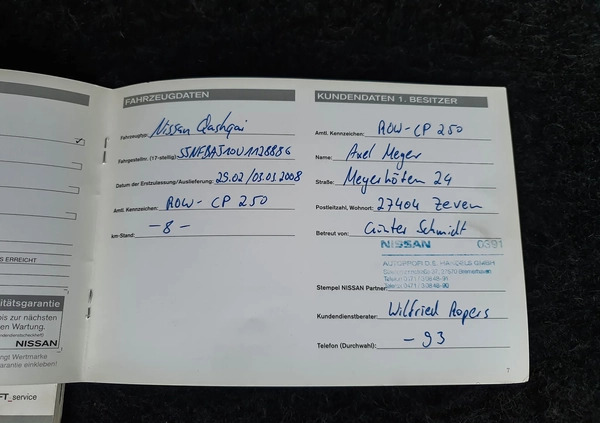 ES ERREICHT
itätsgarantie
bis zur nächsten
en Wartung.
NISSAN
ngt Wertmarke
arantie einkleben!
FT_service
FAHRZEUGDATEN
Fahrzeugtyp: Nissan Qashqai
Fahrgestellnr. (17-stellig): SJNFBAJ10U1128886
Datum der Erstzulassung/Auslieferung: 29.02/03.03.2008
Amtl. Kennzeichen: ROW-CP 250
km-Stand: -8-
KUNDENDATEN 1. BESITZER
Amtl. Kennzeichen: ROW-CP 250
Name: Axel Meyer
Straße: Meyerhöfen 24
Postleitzahl, Wohnort: 27404 Zeven
Betreut von: Günter Schmidt
NISSAN 0391
Stempel NISSAN Partner:
Kundendienstberater: Wilfried Ropers
Telefon (Durchwahl): -93
7